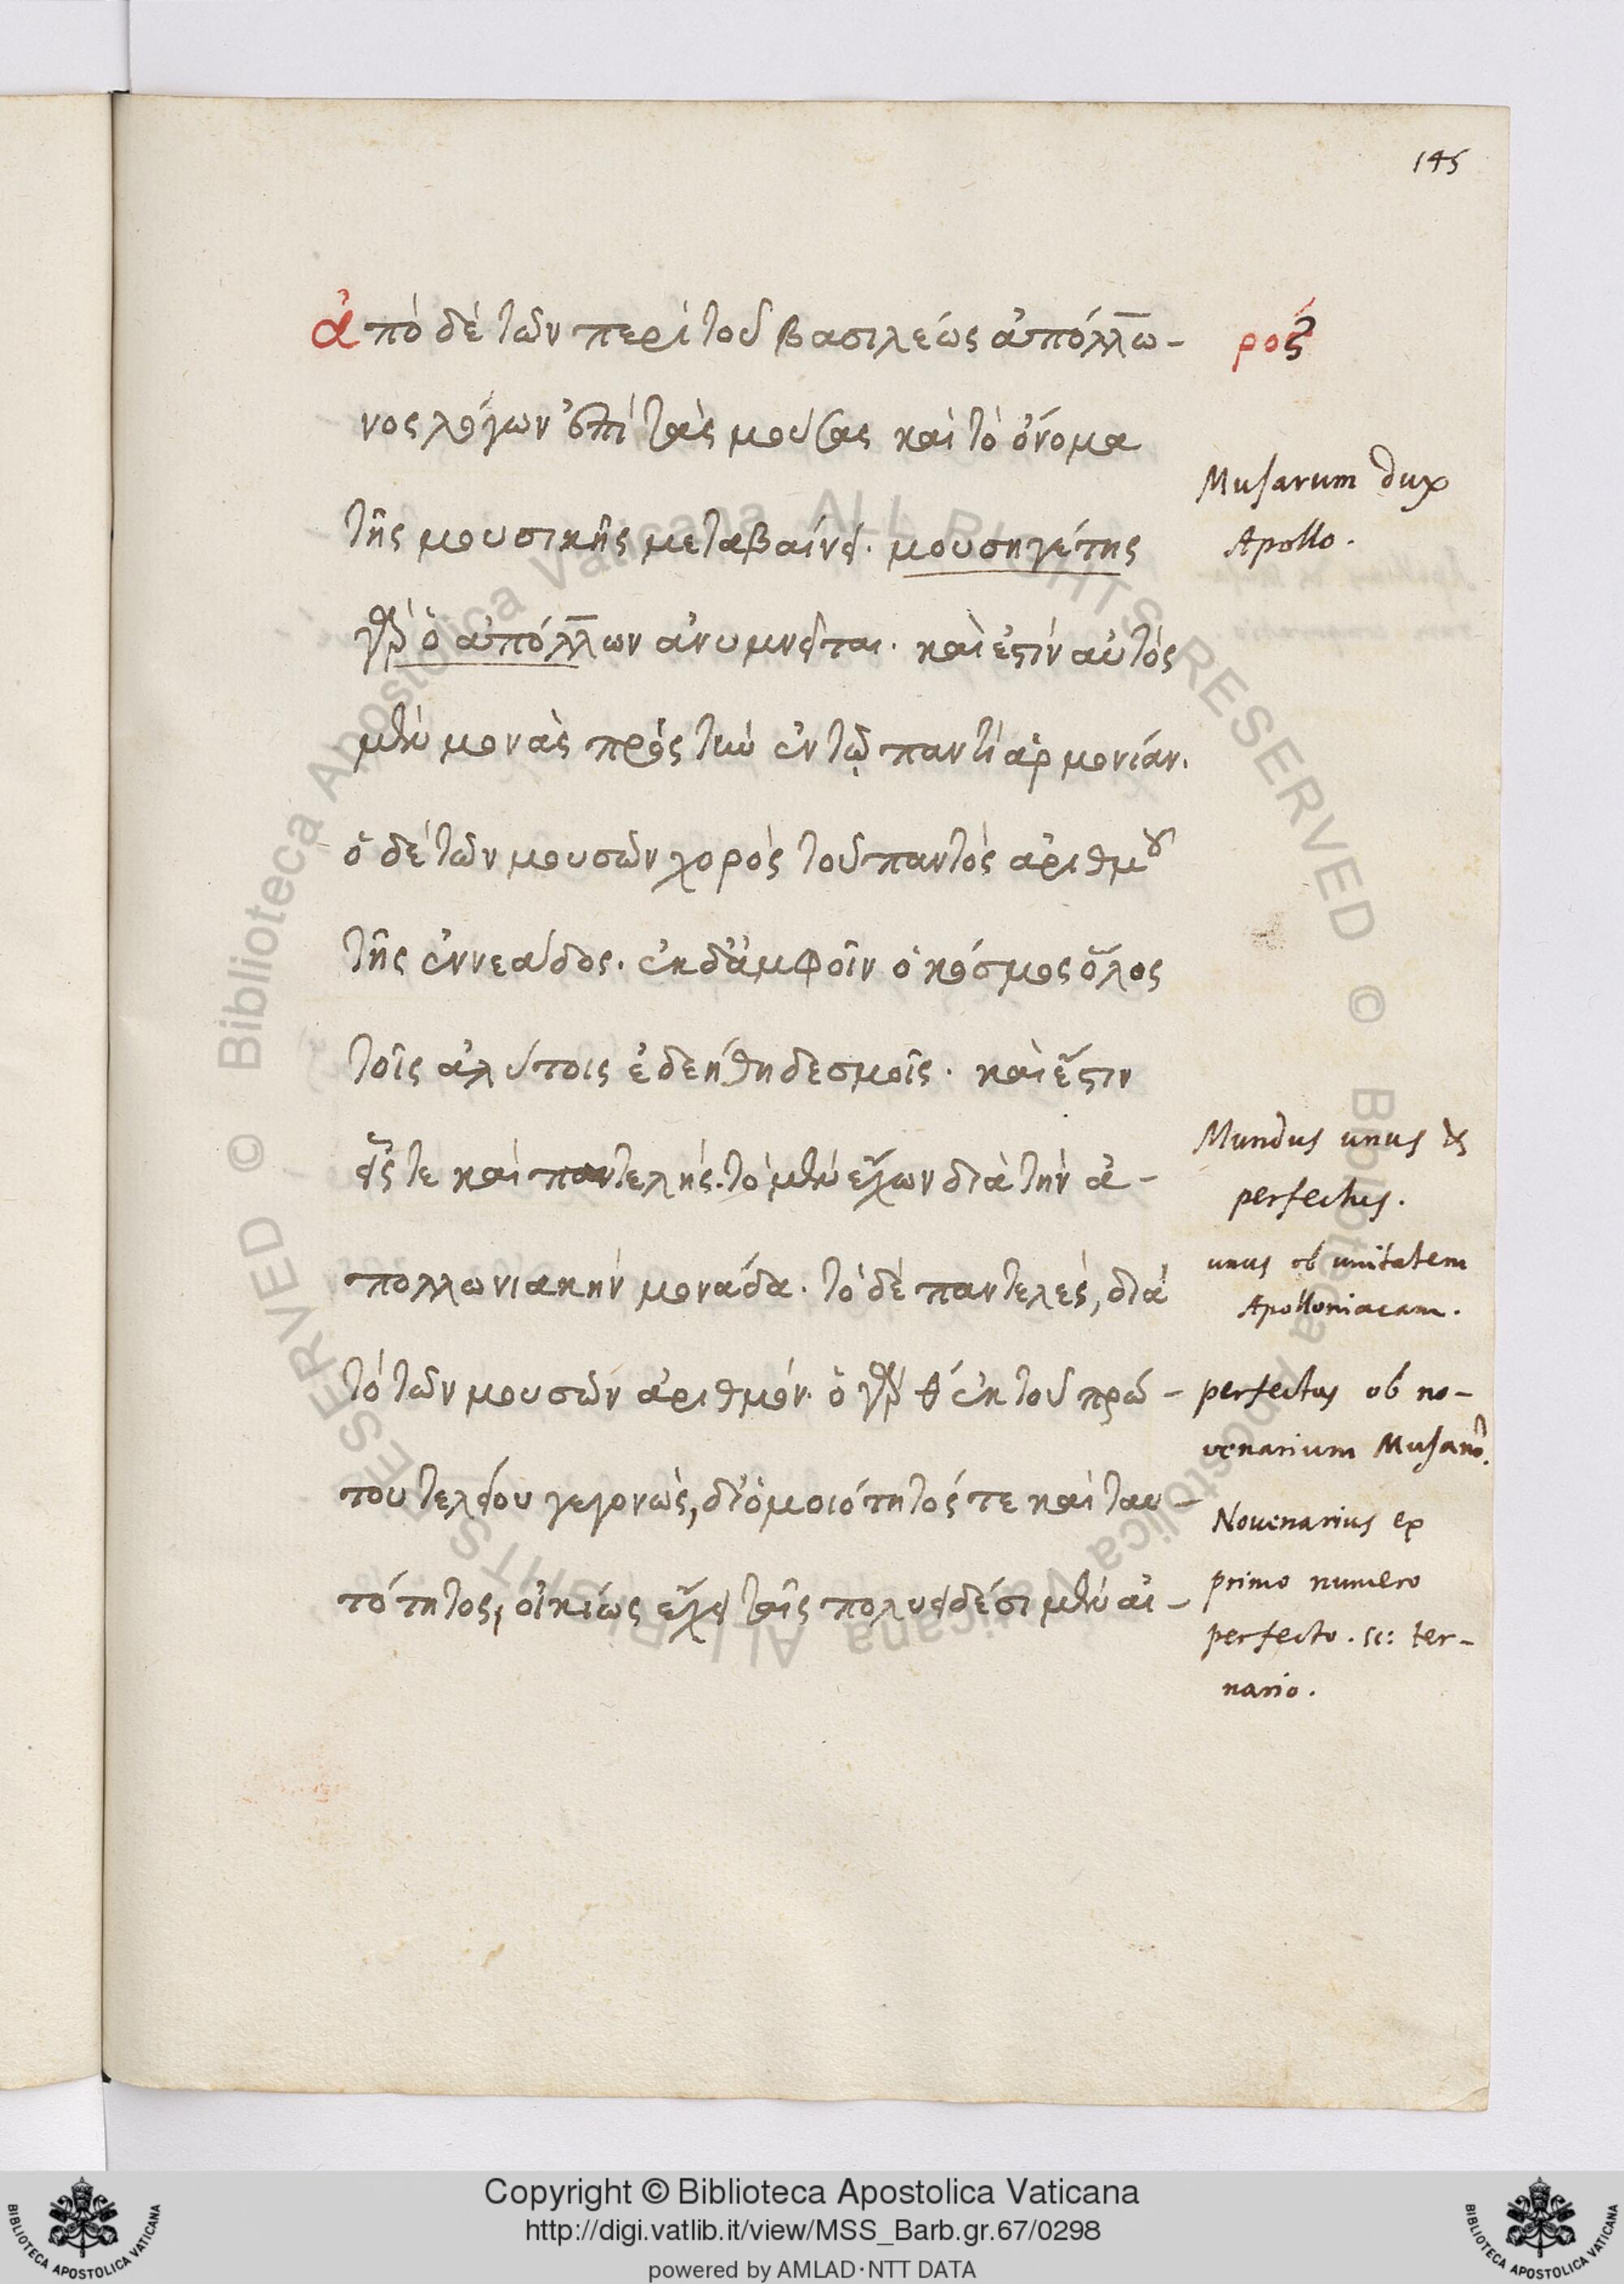 145
ἀπὸ δὲ τῶν περὶ τοῦ βασιλέως ἀπόλλω-
ρος
νος λόγων ἐπὶ τὰς μούσας καὶ τὸ ὄνομα
τῆς μουσικῆς μεταβαίνει. μουσηγέτης
γὰρ ὁ ἀπόλλων ἀνυμνεῖται. καὶ ἐστὶν αὐτὸς
μὲν μονὰς πρὸς τὴν ἐν τῷ παντὶ ἁρμονίαν.
ὁ δὲ τῶν μουσῶν χορὸς τοῦ παντὸς ἀριθμοῦ
τῆς ἐννεάδος. ἐκ δ' ἀμφοῖν ὁ κόσμος ὅλος
τοῖς ἀλύτοις ἐδεήθη δεσμοῖς. καὶ ἔστιν
εἷς τε καὶ παντελής. τὸ μὲν ἔχων διὰ τὴν ἀ-
πολλωνιακὴν μονάδα. τὸ δὲ παντελὲς, διὰ
τὸ τῶν μουσῶν ἀριθμόν. ὁ γὰρ θ´ ἐκ τοῦ πρώ-
του τελείου γεγονὼς, δι' ὁμοιότητός τε καὶ ταυ-
τότητος, οἰκίως ἔχει ταῖς πολυειδέσι μὲν αἰ-
Musarum dux
Apollo.
Mundus unus &
perfectus.
unus ob unitatem
Apolloniacam.
perfectus ob no-
venarium Musarũ.
Novenarius ex
primo numero
perfecto. sc: ter-
nario.
Copyright © Biblioteca Apostolica Vaticana
http://digi.vatlib.it/view/MSS_Barb.gr.67/0298
powered by AMLAD·NTT DATA
BIBLIOTECA APOSTOLICA VATICANA
BIBLIOTECA APOSTOLICA VATICANA
© Biblioteca Apostolica Vaticana ALL RIGHTS RESERVED © Biblioteca Apostolica Vaticana ALL RIGHTS RESERVED